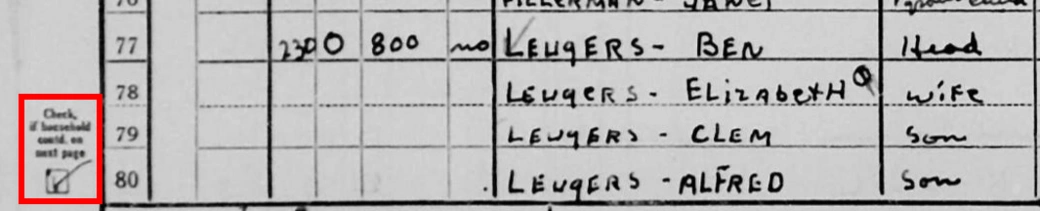 77 230 0 800 no LEUGERS- BEN Head
78 LEUGERS- ELizAbetH wiFe
79 LEUGERS - CLEM Son
80 LEUGERS -ALFRED Son
Check,
if household
contd. on
next page